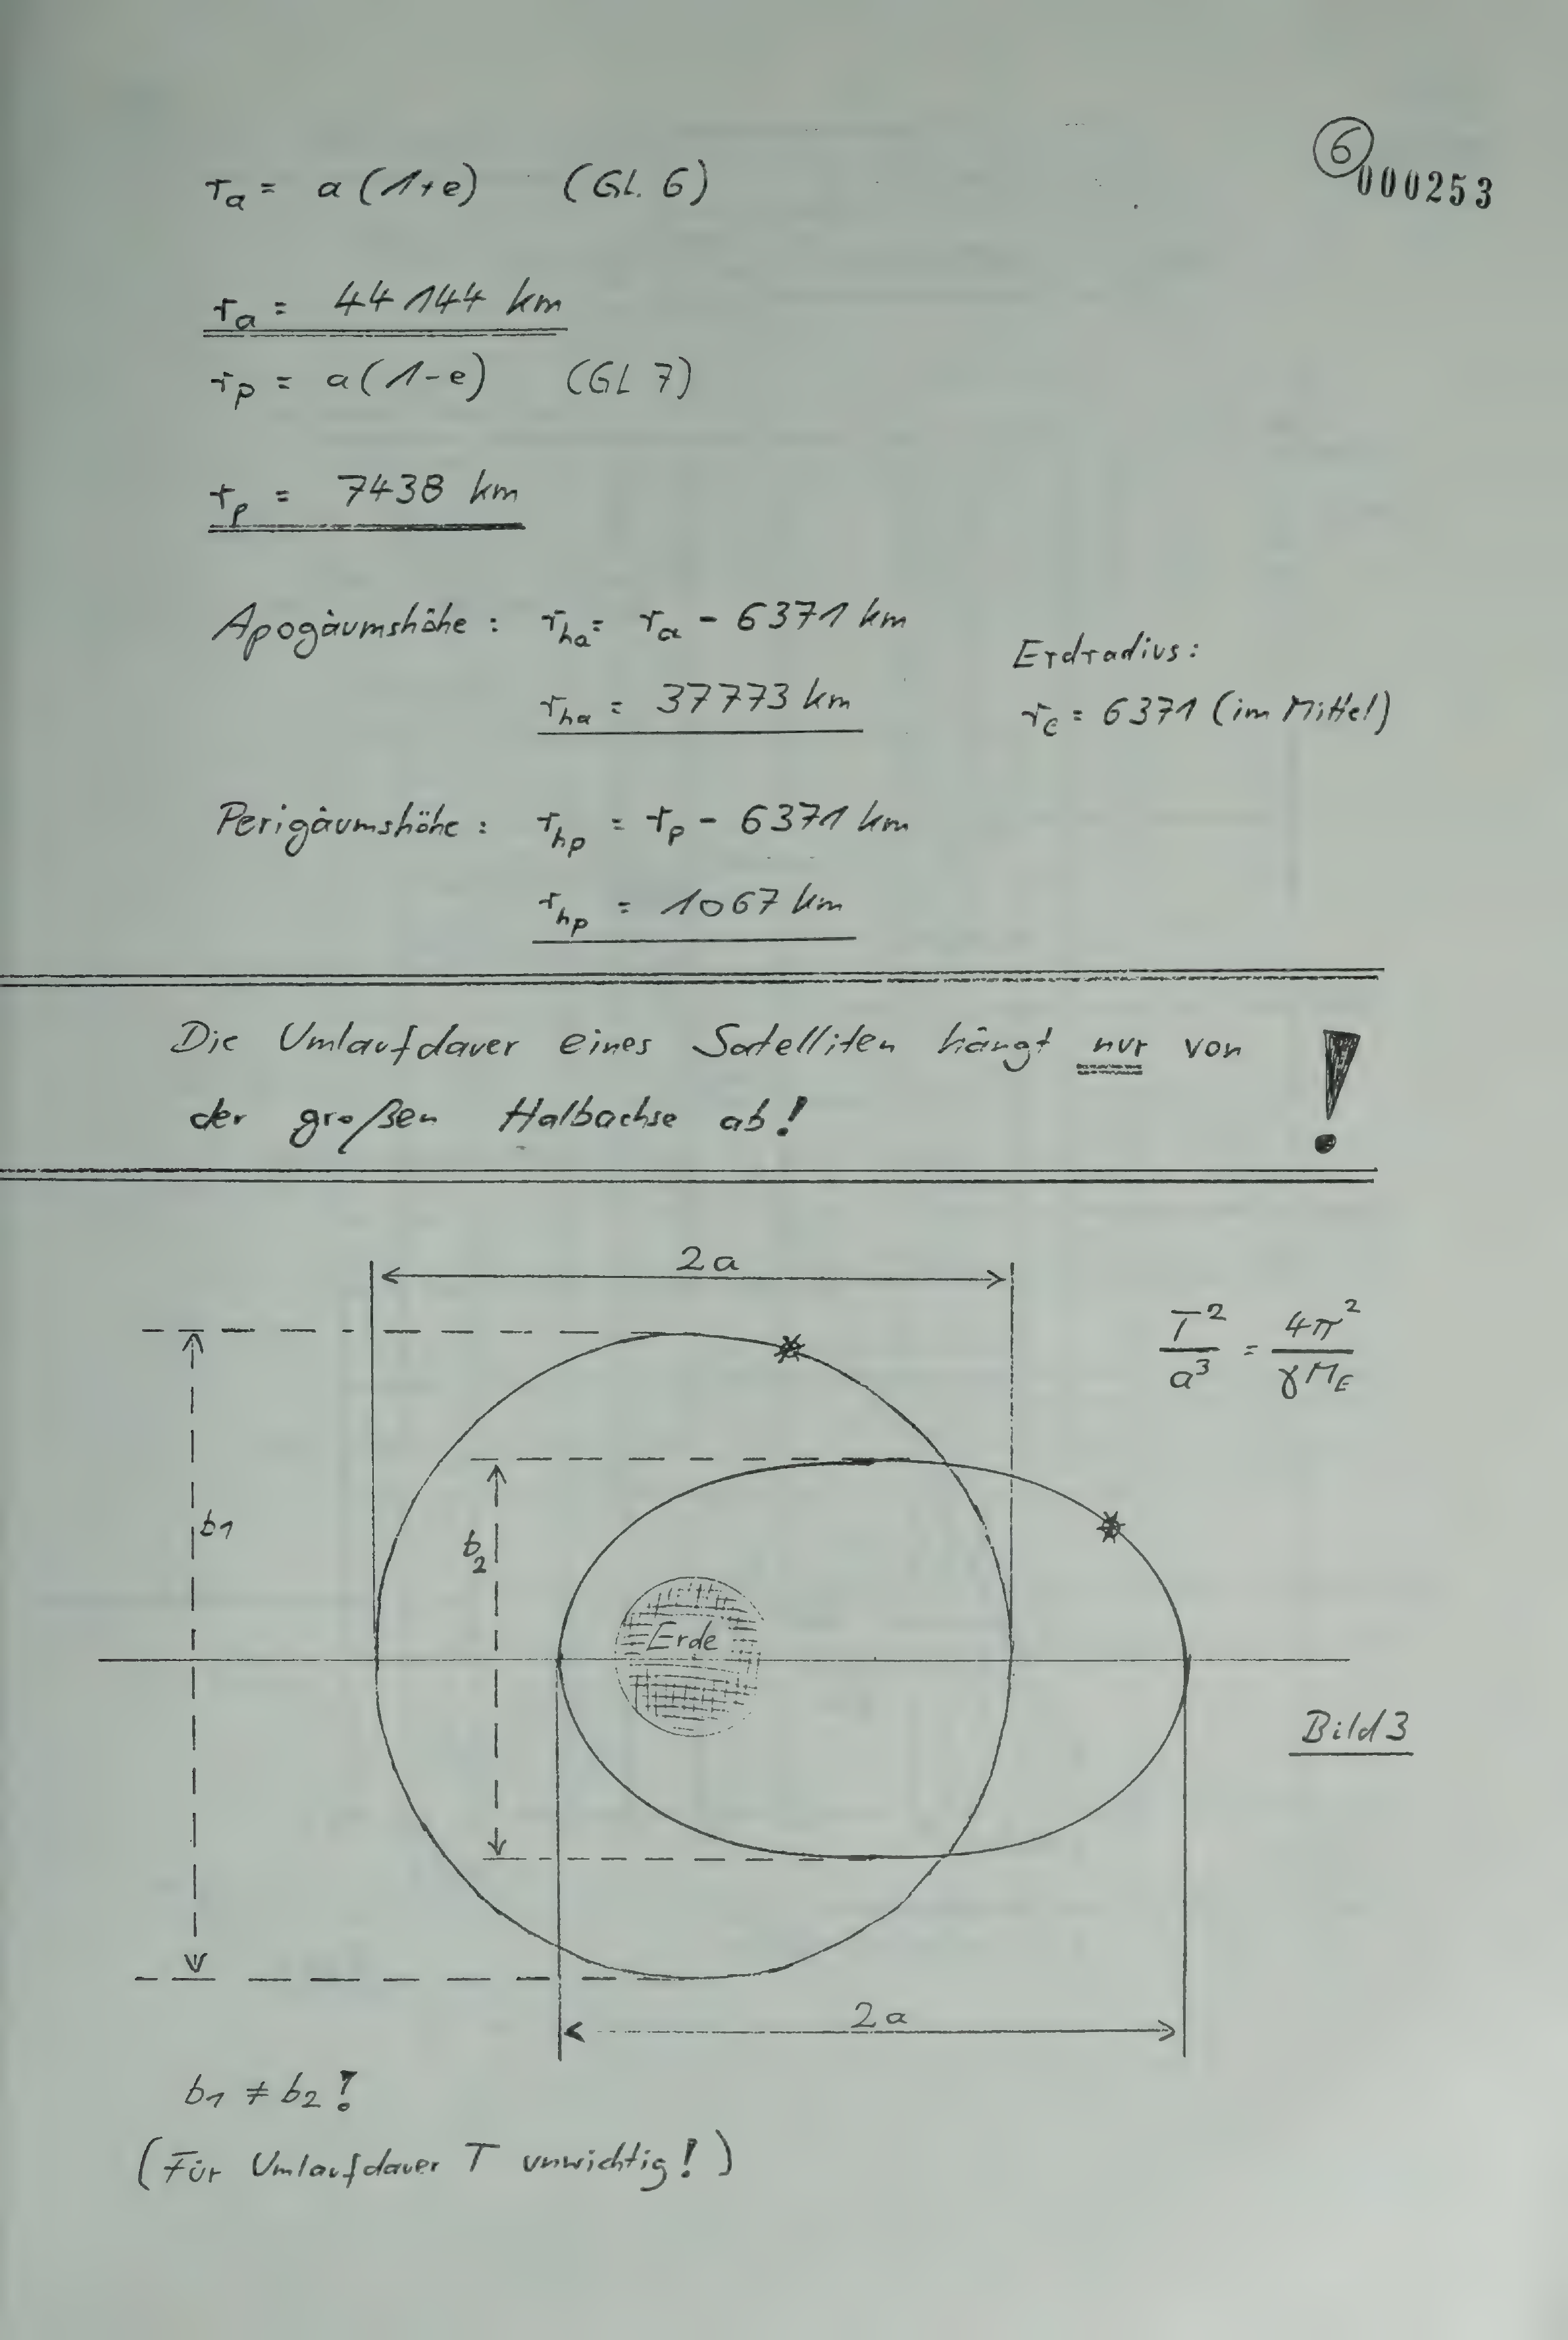 6
000253
ra = a (1+e) (Gl. 6)
ra = 44144 km
rp = a (1-e) (Gl 7)
rp = 7438 km
Apogäumshöhe : rha = ra - 6371 km
Erdradius:
rha = 37773 km
re = 6371 (im Mittel)
Perigäumshöhe : rhp = rp - 6371 km
rhp = 1067 km
Die Umlaufdauer eines Satelliten hängt nur von
der großen Halbachse ab! !
2a
T²/a³ = 4π²/γME
b1
b2
Erde
Bild 3
2a
b1 ≠ b2 !
(Für Umlaufdauer T unwichtig! )